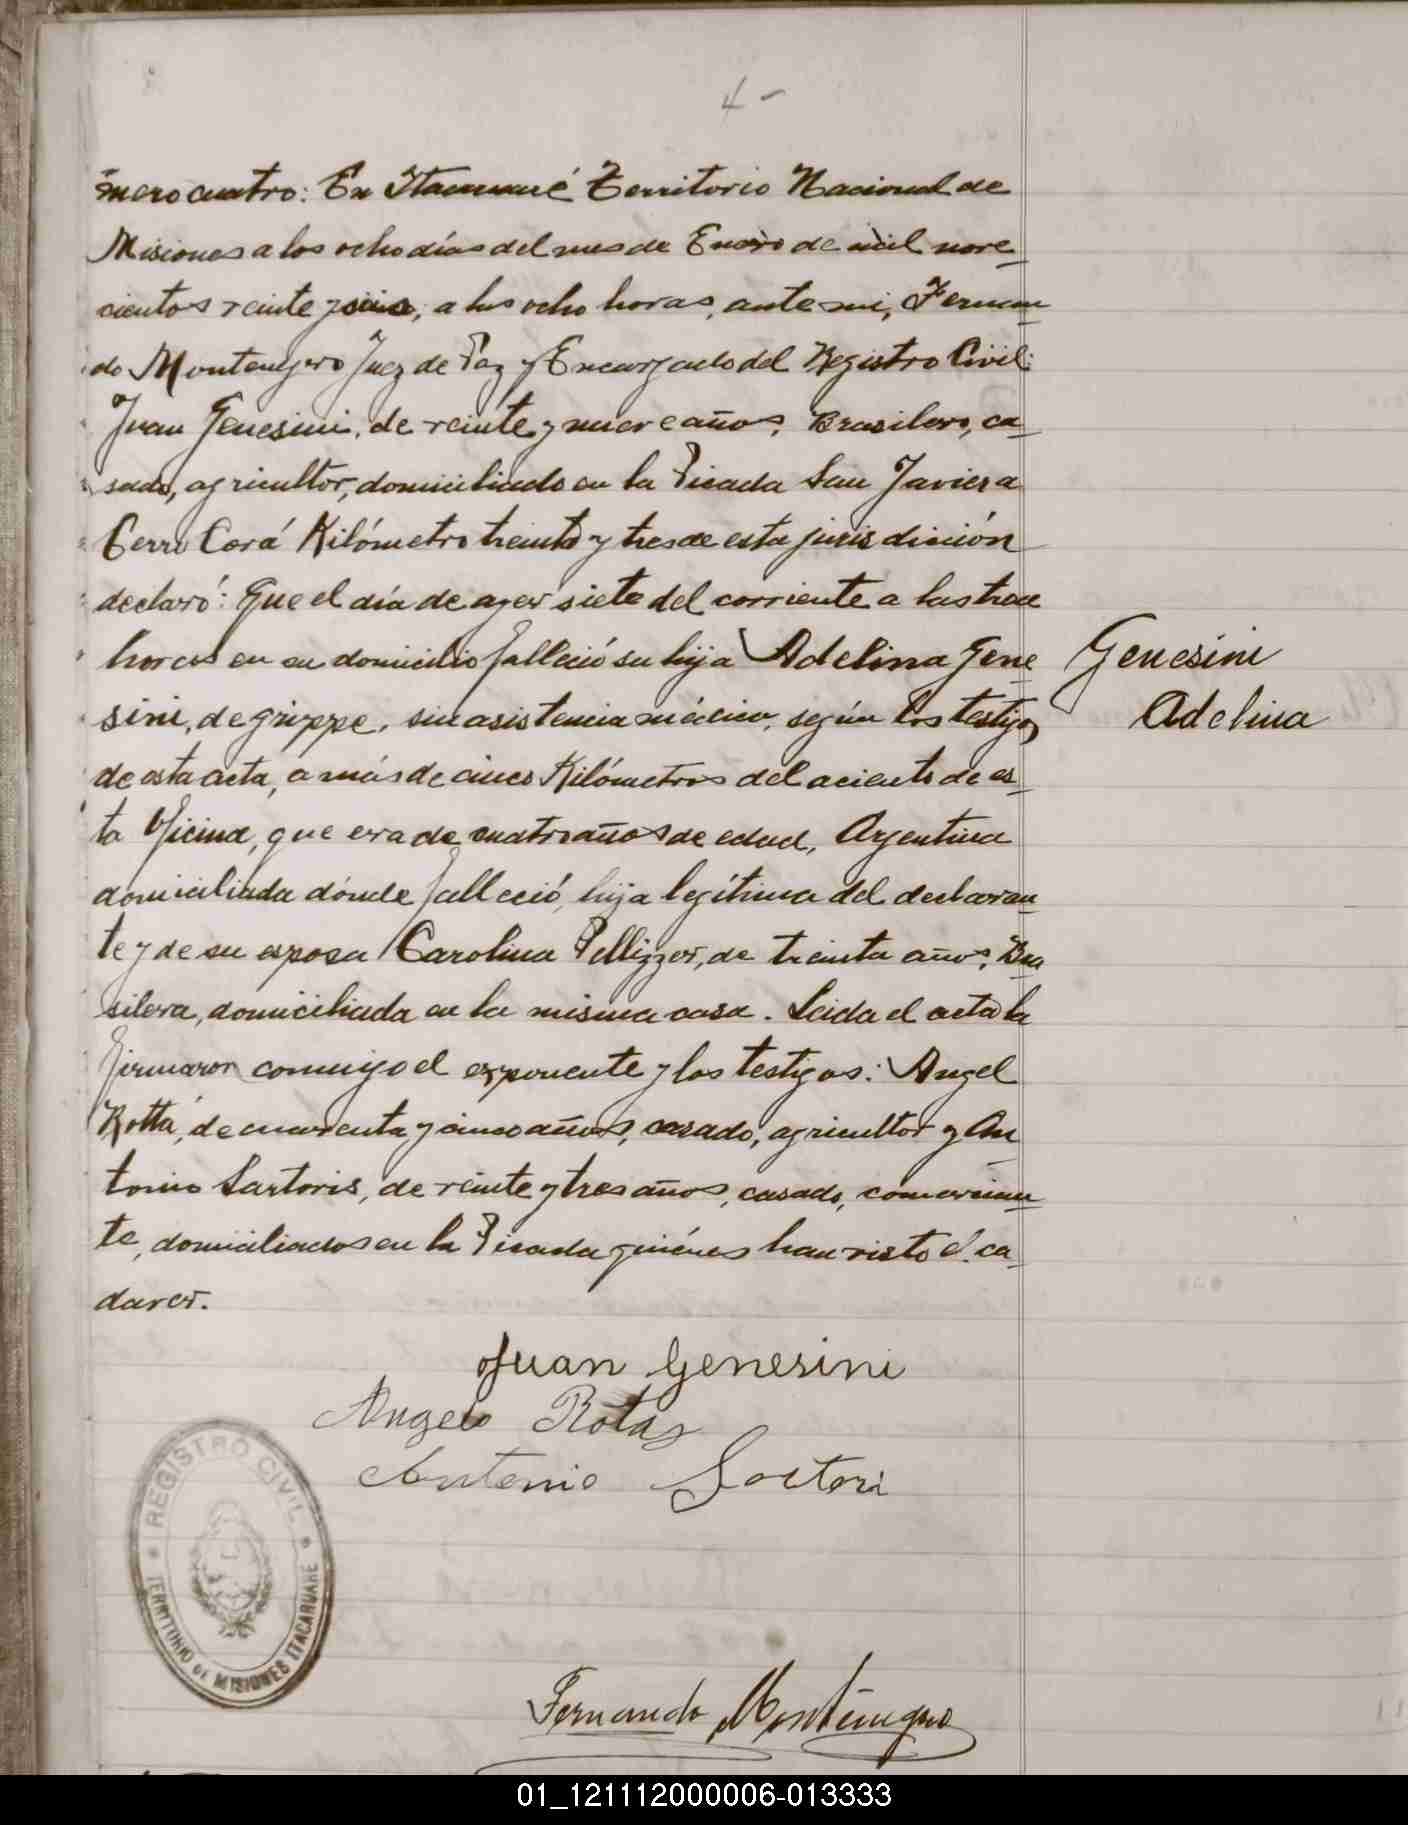 4-
mero cuatro: En Itacaruaré Territorio Nacional de
Misiones a los ocho días del mes de Enero de mil nove-
cientos veinte y seis, a las ocho horas, ante mi, Fernan-
do Montenegro Juez de Paz y Encargado del Registro Civil:
Juan Genesini, de veinte y nueve años, Brasilero, ca-
sado, agricultor, domiciliado en la Picada San Javier a
Cerro Corá Kilómetro treinta y tres de esta jurisdición
declaró: Que el día de ayer siete del corriente a las trece
horas en su domicilio falleció su hija Adelina Gene
sini, de grippe, sin asistencia médica, según los testigos
de esta acta, a más de cinco Kilómetros del aciento de es-
ta Oficina, que era de cuatro años de edad, Argentina
domiciliada dónde falleció, hija legítima del declaran-
te y de su esposa Carolina Pellizzer, de treinta años, Bra
silera, domiciliada en la misma casa. Leida el acta la
firmaron conmigo el exponente y los testigos: Angel
Rotta, de cuarenta y cinco años, casado, agricultor y An
tonio Sartoris, de veinte y tres años, casado, comercian-
te, domiciliados en la Picada quiénes han visto el ca-
daver.
Genesini
Adelina
Juan Genesini
Angelo Rotas
Antonio Sartori
REGISTRO CIVIL
TERRITORIO DE MISIONES ITACARUARE
Fernando Montenegro
01_121112000006-013333